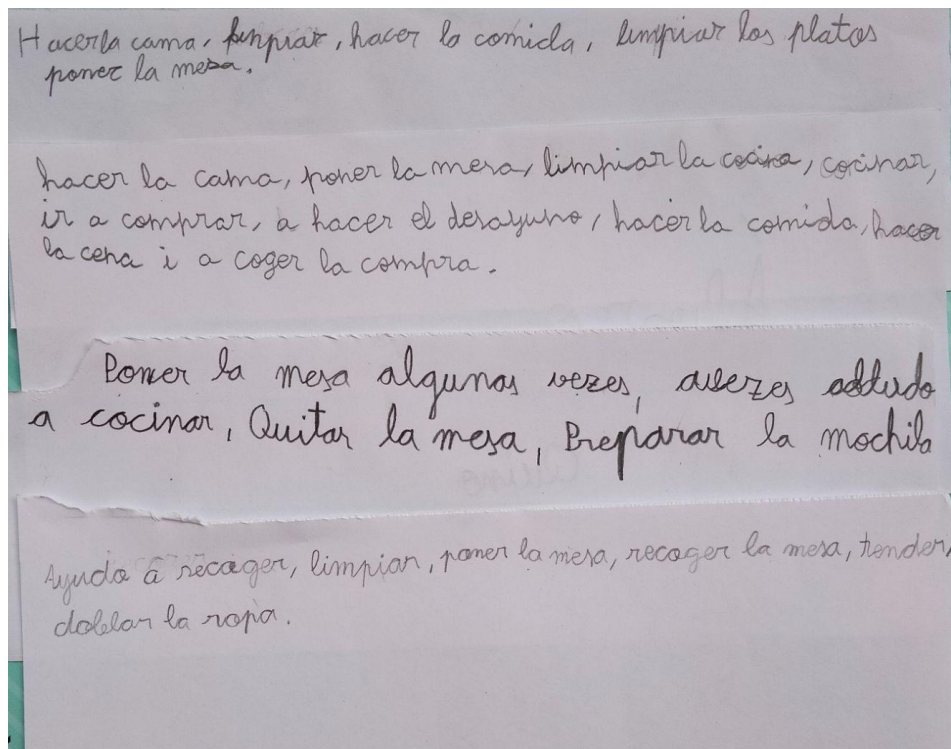 Hacerla cama, limpiar, hacer la comida, limpiar los platos
poner la mesa.
hacer la cama, poner la mesa, limpiar la cocina, cocinar,
ir a comprar, a hacer el desayuno, hacer la comida, hacer
la cena i a coger la compra.
Poner la mesa algunas vezes, avezes
a cocinar, Quitar la mesa, Preparar la mochila
Ayudo a recoger, limpiar, poner la mesa, recoger la mesa, tender,
doblar la ropa.